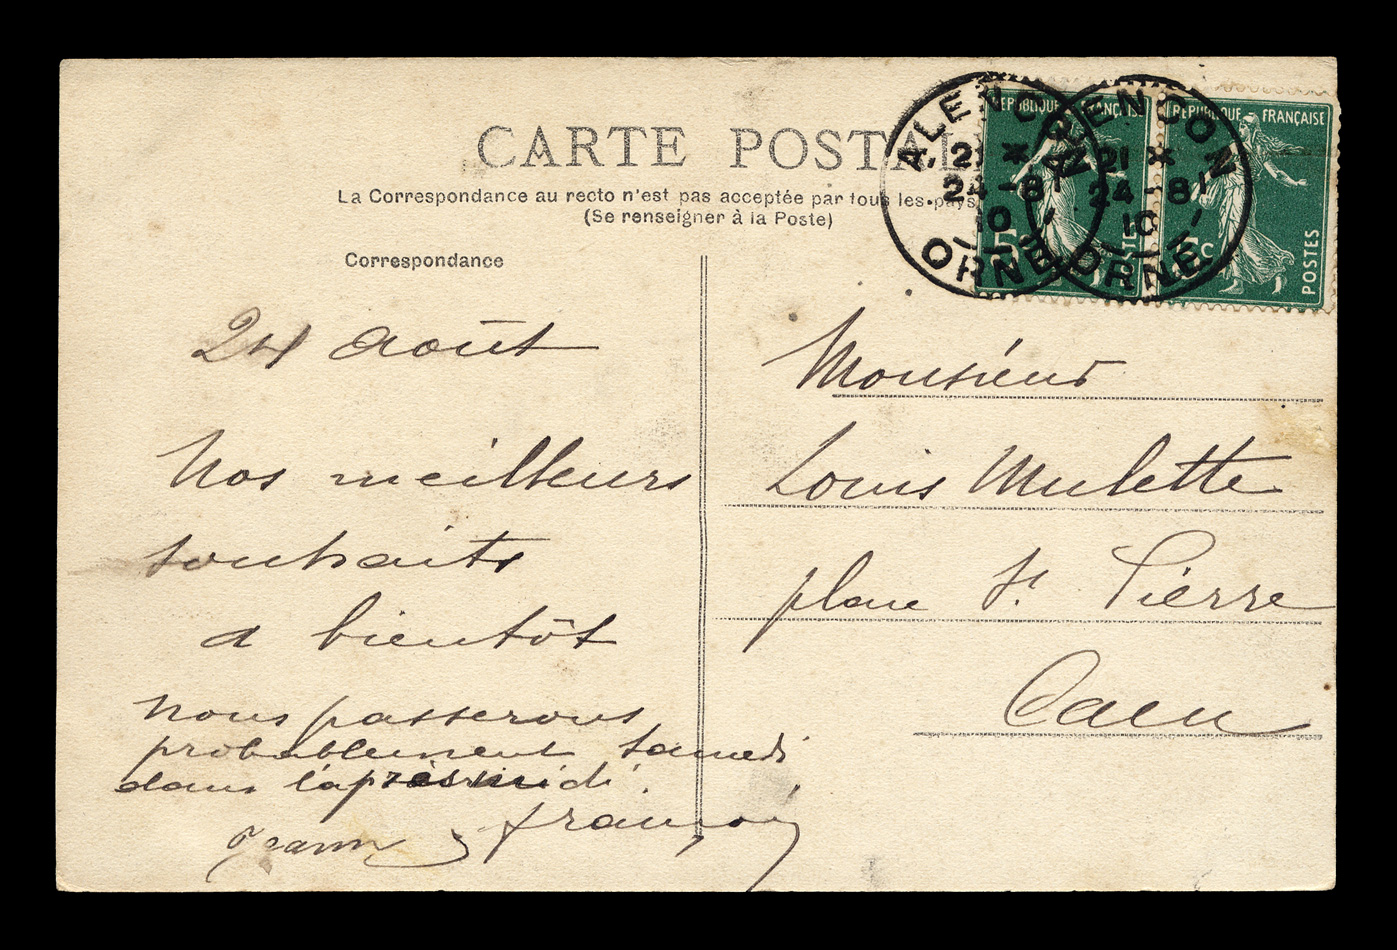 CARTE POSTAL
La Correspondance au recto n'est pas acceptée par tous les pays
(Se renseigner à la Poste)
Correspondance
ALENCON
21 *
24 - 8
10
ORNE
ALENCON
21 *
24 - 8
10
ORNE
REPUBLIQUE FRANÇAISE
5c
POSTES
REPUBLIQUE FRANÇAISE
5c
POSTES
24 Août
Nos meilleurs
souhaits
a bientôt
nous passerons
probablement samedi
dans l'après midi.
françois
Monsieur
Louis Mulette
place St. Pierre
Caen